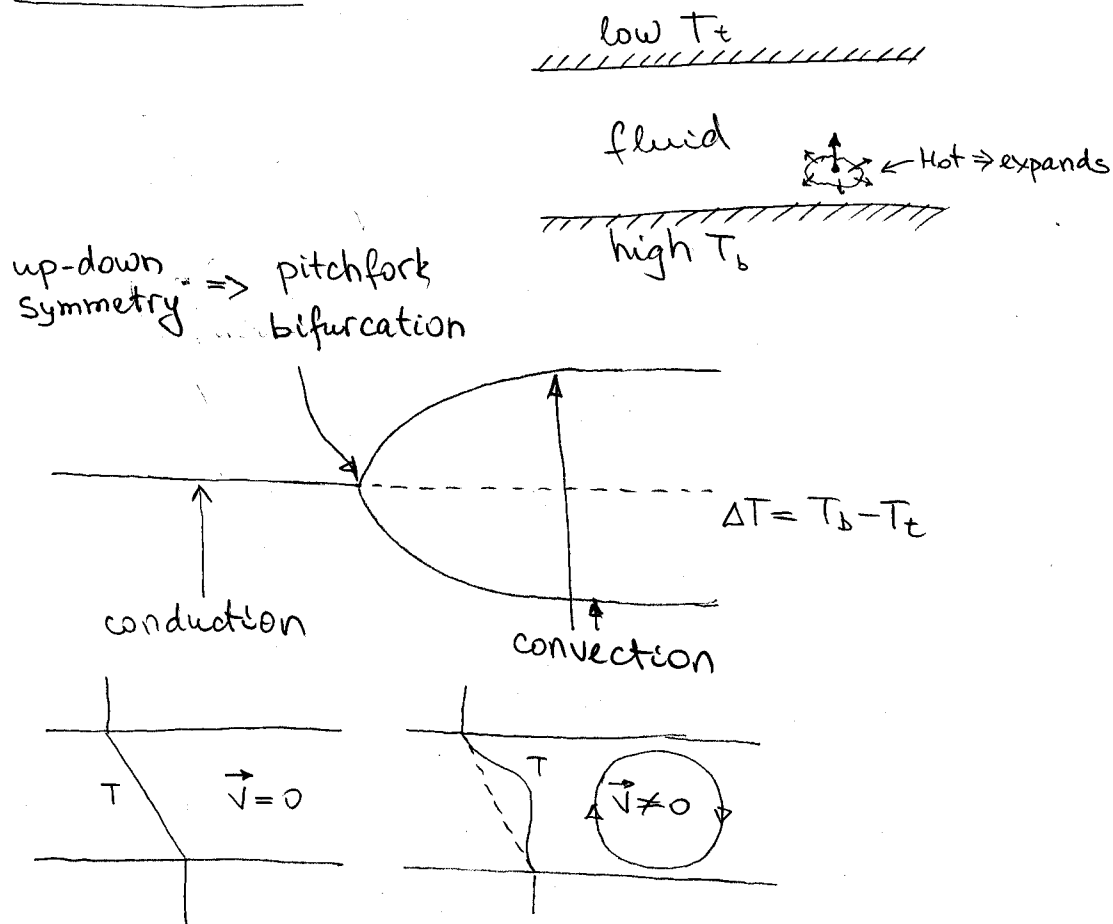 low Tt
fluid
← Hot ⇒ expands
high Tb
up-down
symmetry => pitchfork
bifurcation
ΔT = Tb - Tt
conduction
convection
T
v⃗ = 0
T
v⃗ ≠ 0